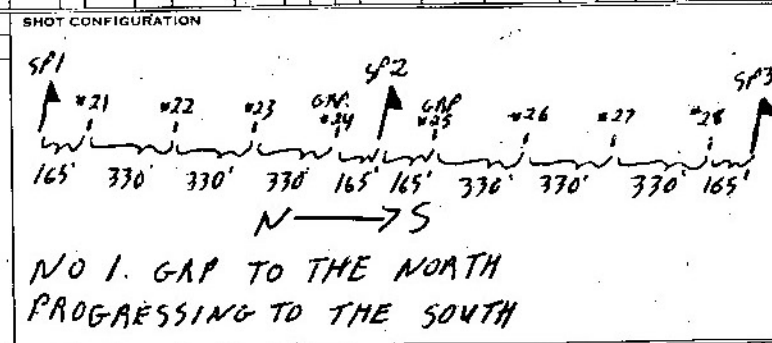 SHOT CONFIGURATION
SP1 SP2 SP3
#21 #22 #23 GRP. #24 GRP #25 #26 #27 #28
165' 330' 330' 330' 165' 165' 330' 330' 330' 165'
N S
NO 1. GRP TO THE NORTH
PROGRESSING TO THE SOUTH